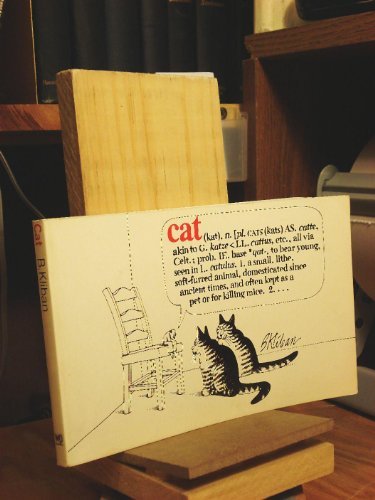 cat (kat), n. [pl. CATS (kats) AS. catte,
akin to G. katze < LL. cattus, etc., all via
Celt.; prob. IE. base *qat-, to bear young,
seen in L. catulus. 1. a small, lithe,
soft-furred animal, domesticated since
ancient times, and often kept as a
pet or for killing mice. 2. . . .
BKliban
Cat B. Kliban